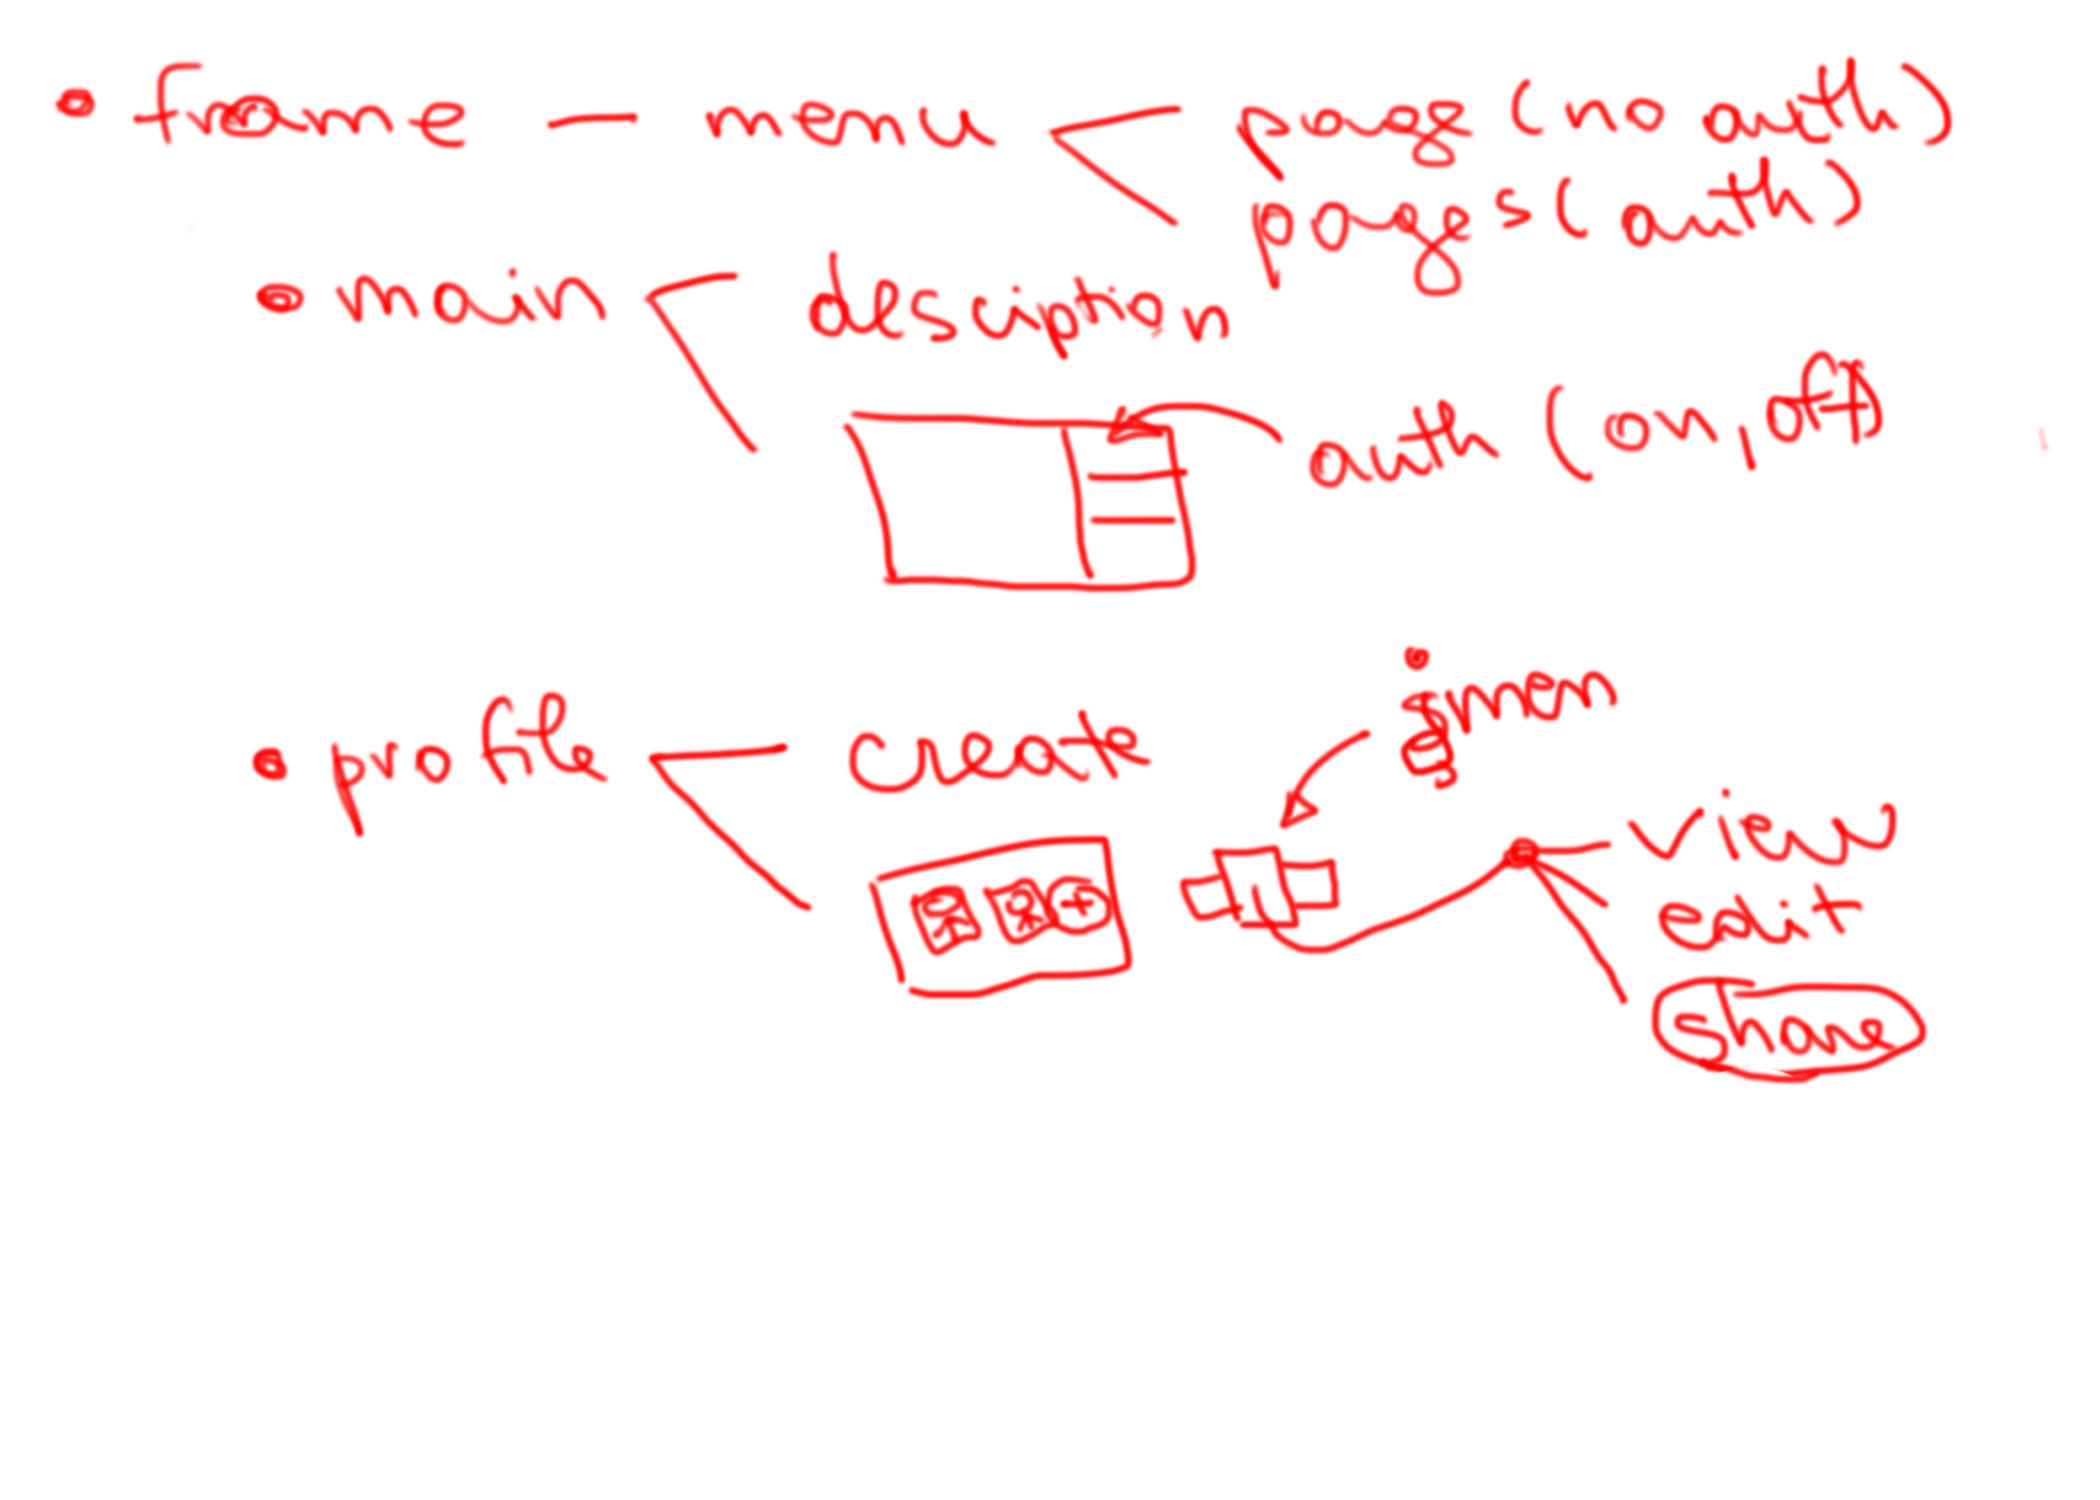 frame — menu page (no auth)
pages (auth)
main desciption
auth (on, off)
profile create
view
edit
share